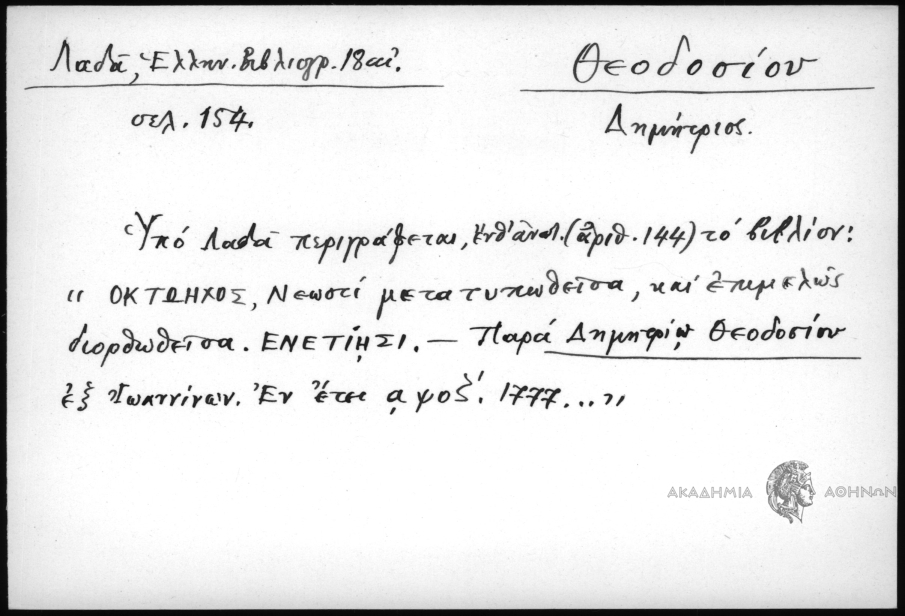 Λαδᾶ, Ἑλλην. βιβλιογρ. 18 αἰ.
Θεοδοσίου
σελ. 154.
Δημήτριος.
Ὑπό Λαδᾶ περιγράφεται, (ἀριθ. 144) τό βιβλίον:
" ΟΚΤΩΗΧΟΣ, Νεωστί μετατυπωθεῖσα, καί ἐπιμελῶς
διορθωθεῖσα. ΕΝΕΤΙῌΣΙ. — Παρά Δημητρίῳ Θεοδοσίου
ἐξ Ἰωαννίνων. Ἐν ἔτει αψοζ΄. 1777..."
ΑΚΑΔΗΜΙΑ ΑΘΗΝΩΝ